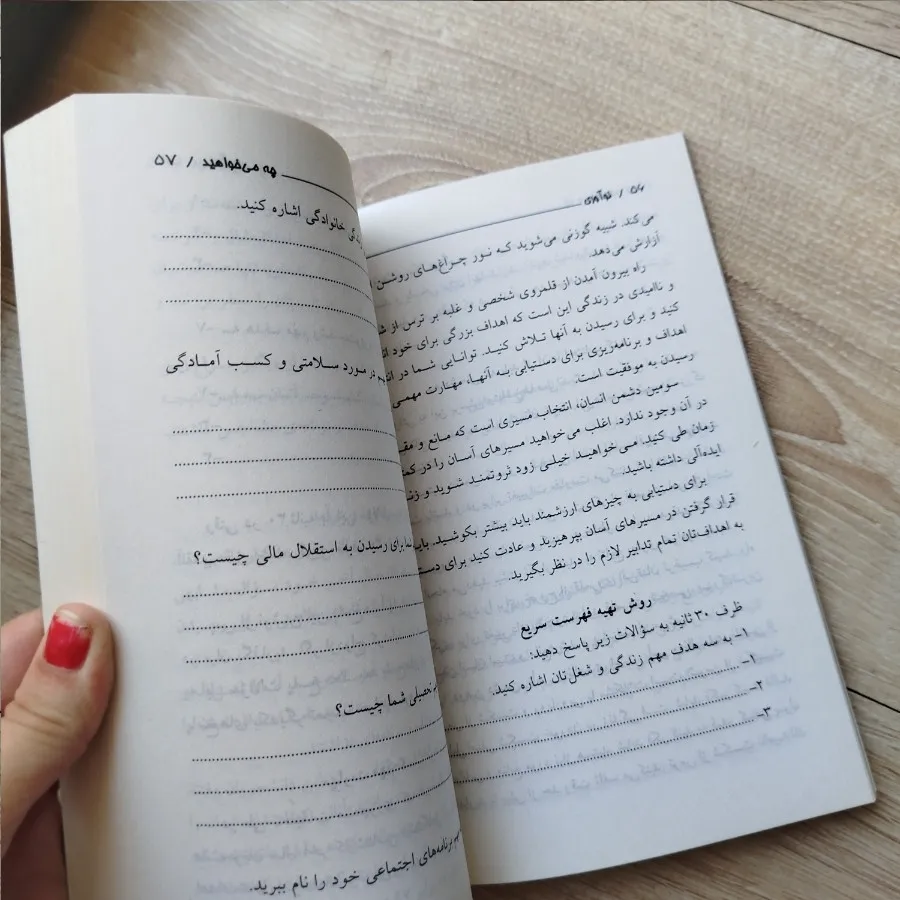 ۵۶ / نوآوری
می‌کند. شبیه گوزنی می‌شوید که نور چراغ‌های روشن
آزارش می‌دهد.
راه بیرون آمدن از قلمروی شخصی و غلبه بر ترس از
و ناامیدی در زندگی این است که اهداف بزرگی برای خود
کنید و برای رسیدن به آنها تلاش کنید. توانایی شما در
اهداف و برنامه‌ریزی برای دستیابی به آنها، مهارت مهمی
رسیدن به موفقیت است.
سومین دشمن انسان، انتخاب مسیری است که مانع و
در آن وجود ندارد. اغلب می‌خواهید مسیرهای آسان را در
زمان طی کنید. می‌خواهید خیلی زود ثروتمند شوید و
ایده‌آلی داشته باشید.
برای دستیابی به چیزهای ارزشمند باید بیشتر بکوشید. باید
قرار گرفتن در مسیرهای آسان بپرهیزید و عادت کنید برای
به اهداف‌تان تمام تدابیر لازم را در نظر بگیرید.
روش تهیه فهرست سریع
ظرف ۳۰ ثانیه به سؤالات زیر پاسخ دهید:
۱- به سه هدف مهم زندگی و شغل‌تان اشاره کنید.
۱-
۲-
۳-
چه می‌خواهید / ۵۷
خانوادگی اشاره کنید.
در مورد سلامتی و کسب آمادگی
برای رسیدن به استقلال مالی چیست؟
تحصیلی شما چیست؟
برنامه‌های اجتماعی خود را نام ببرید.